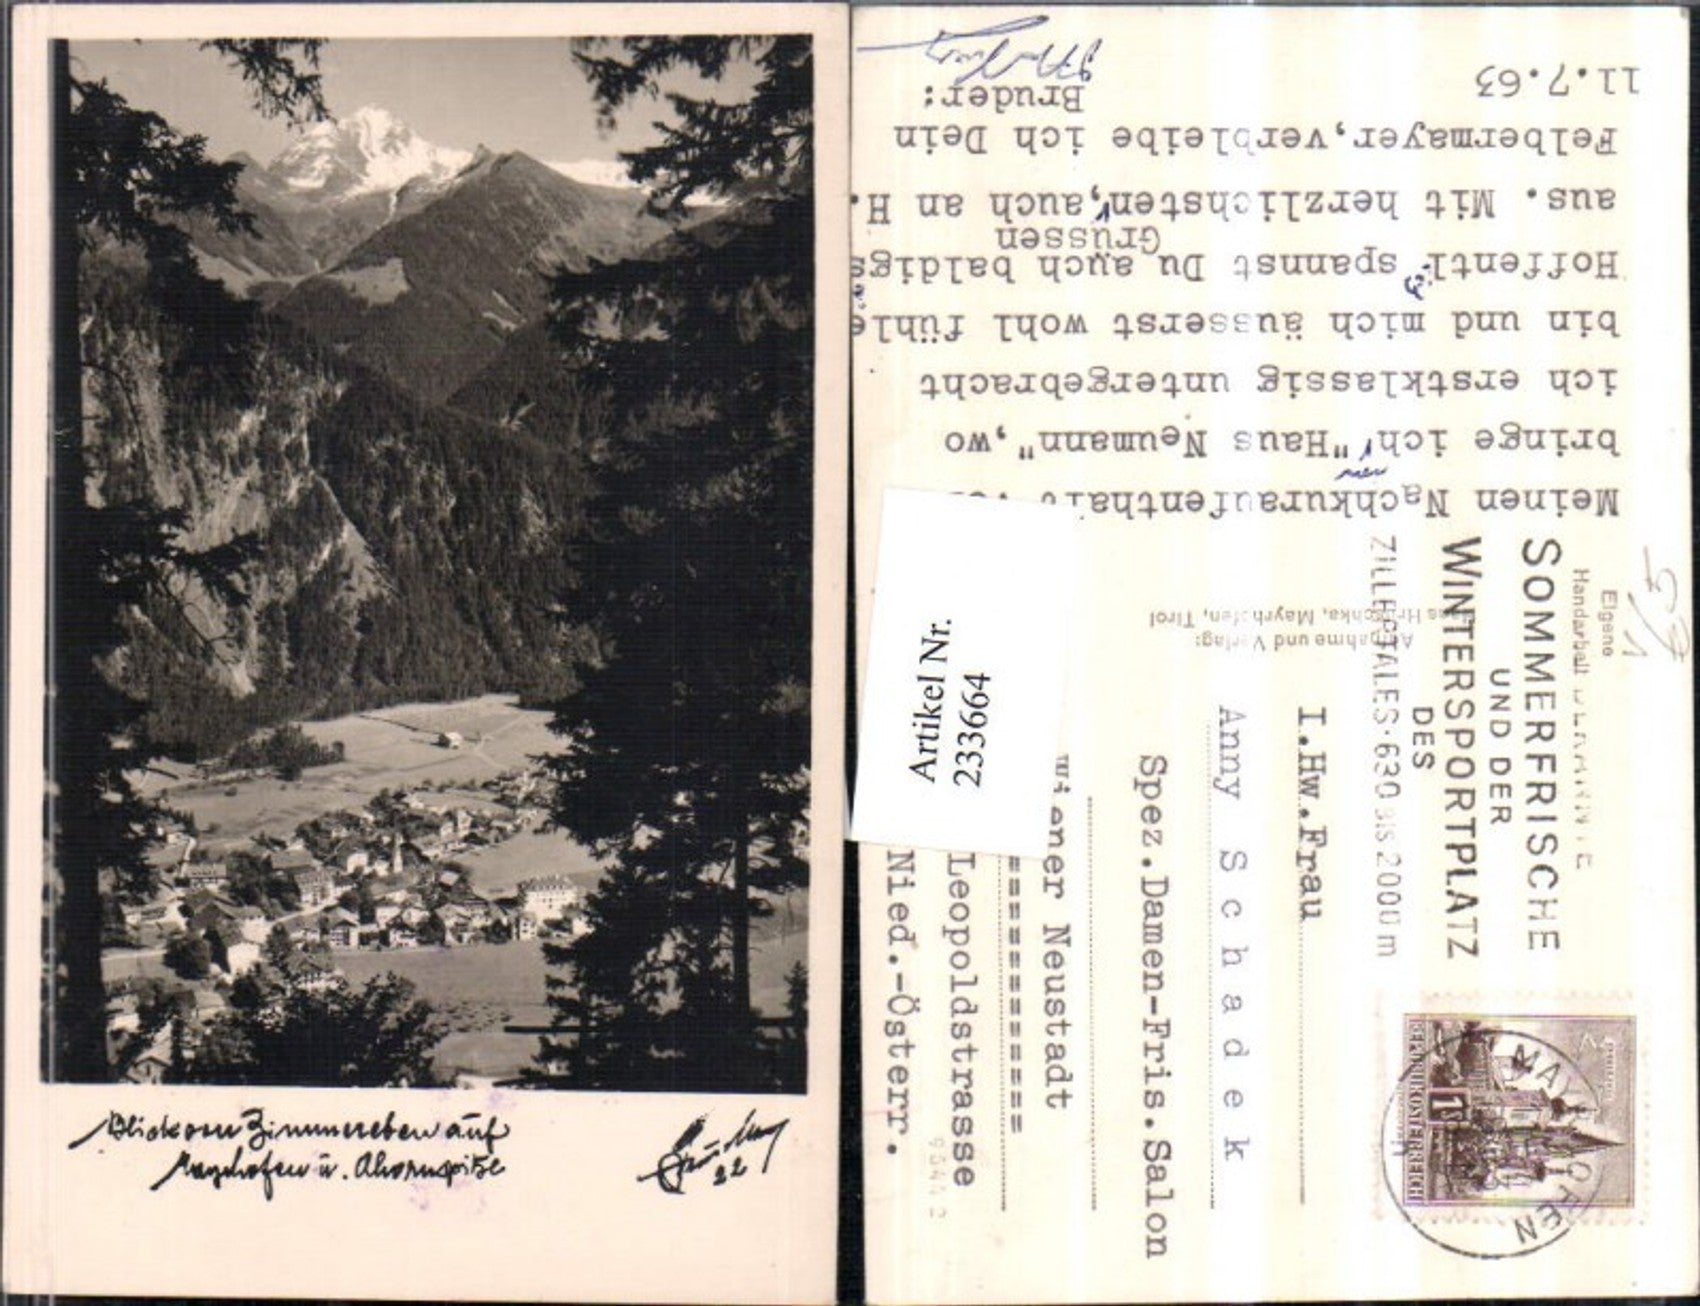 Blick von Zimmereben auf
Mayrhofen u. Ahornspitze
22
11.7.63
Meinen Nachkuraufenthalt
bringe ich "Haus Neumann",wo
ich erstklassig untergebracht
bin und mich äusserst wohl fühle
Hoffentl. spannst Du auch baldigs
aus. Mit herzlichsten, auch an H.
Grüssen
Felbermayer,verbleibe ich Dein
Bruder:
Artikel Nr.
233664
Aufnahme und Verlag:
Hruschka, Mayrhofen, Tirol
Eigene
Handarbeit
SOMMERFRISCHE
UND DER
WINTERSPORTPLATZ
DES
ZILLERTALES·630 BIS 2000 m
MAYRHOFEN
1S
REPUBLIK ÖSTERREICH
I.Hw.Frau
Anny Schadek
Spez.Damen-Fris.Salon
Wiener Neustadt
================
Leopoldstrasse
Nied.-Österr.